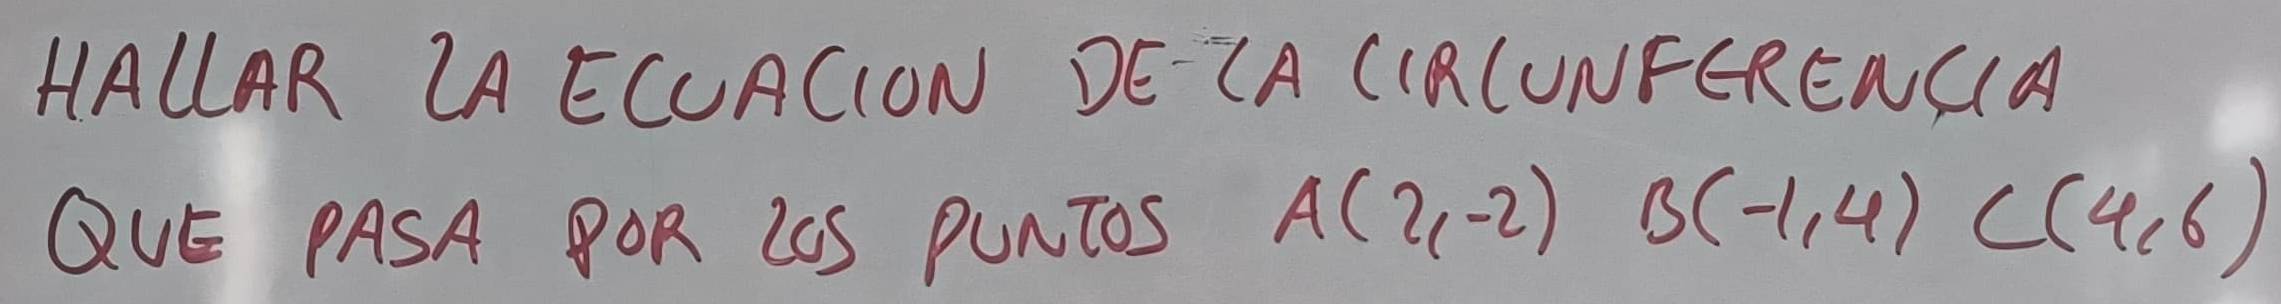 HALLAR LA ECUACION DE LA CIRCUNFERENCIA
QUE PASA POR LOS PUNTOS A(2,-2) B(-1,4) C(4,6)